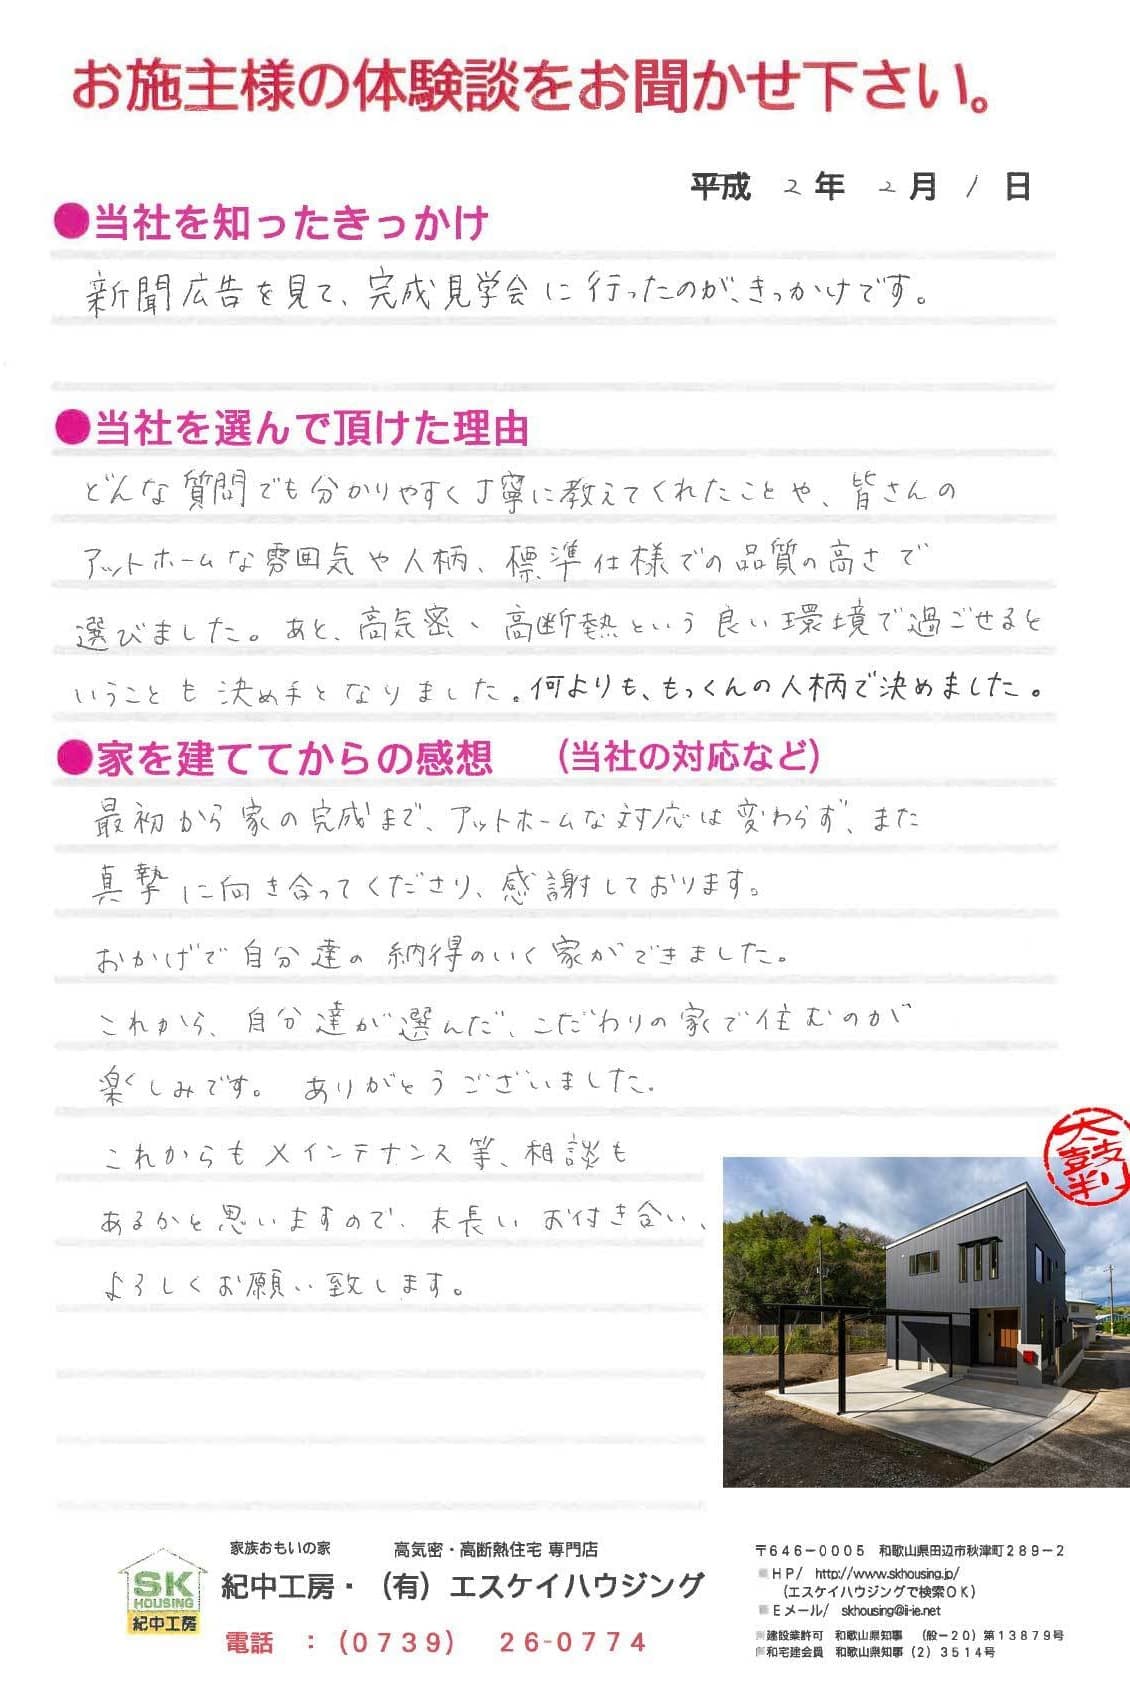 お施主様の体験談をお聞かせ下さい。
平成 2年 2月 1日
●当社を知ったきっかけ
新聞広告を見て、完成見学会に行ったのが、きっかけです。
●当社を選んで頂けた理由
どんな質問でも分かりやすく丁寧に教えてくれたことや、皆さんの
アットホームな雰囲気や人柄、標準仕様での品質の高さで
選びました。あと、高気密、高断熱という良い環境で過ごせると
いうことも決め手となりました。何よりも、もっくんの人柄で決めました。
●家を建ててからの感想 (当社の対応など)
最初から家の完成まで、アットホームな対応は変わらず、また
真摯に向き合ってくださり、感謝しております。
おかげで自分達の納得のいく家ができました。
これから、自分達が選んだ、こだわりの家で住むのが
楽しみです。 ありがとうございました.
これからもメインテナンス等、相談も
あるかと思いますので、末長いお付き合い、
よろしくお願い致します。
太鼓判
SK
HOUSING
紀中工房
家族おもいの家 高気密・高断熱住宅 専門店
紀中工房・(有)エスケイハウジング
電話 : (0739) 26-0774
〒646-0005 和歌山県田辺市秋津町289-2
■HP/ http://www.skhousing.jp/
(エスケイハウジングで検索OK)
■Eメール/ skhousing@ii-ie.net
建設業許可 和歌山県知事 (般-20)第13879号
和宅建会員 和歌山県知事(2)3514号